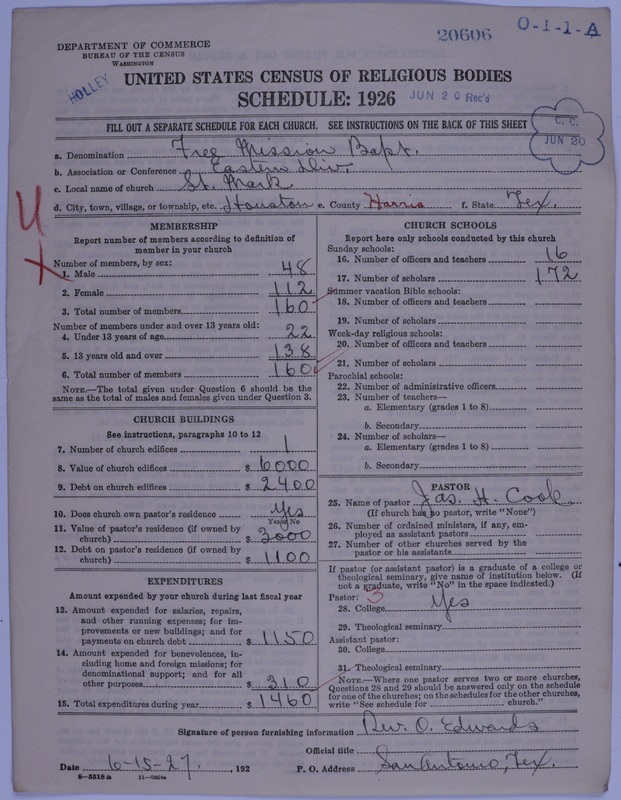 20606
O-1-1-A
DEPARTMENT OF COMMERCE
BUREAU OF THE CENSUS
WASHINGTON
HOLLEY
UNITED STATES CENSUS OF RELIGIOUS BODIES
SCHEDULE: 1926
JUN 20 Rec'd
C. C.
JUN 20
FILL OUT A SEPARATE SCHEDULE FOR EACH CHURCH. SEE INSTRUCTIONS ON THE BACK OF THIS SHEET
a. Denomination Free Mission Bapt.
b. Association or Conference Eastern Div.
c. Local name of church St. Mark
d. City, town, village, or township, etc. Houston e. County Harris f. State Tex.
MEMBERSHIP
Report number of members according to definition of
member in your church
Number of members, by sex:
1. Male 48
2. Female 112
3. Total number of members 160
Number of members under and over 13 years old:
4. Under 13 years of age 22
5. 13 years old and over 138
6. Total number of members 160
NOTE.—The total given under Question 6 should be
same as the total of males and females given under Question 3.
CHURCH BUILDINGS
See instructions, paragraphs 10 to 12
7. Number of church edifices 1
8. Value of church edifices $ 6000
9. Debt on church edifices $ 2400
10. Does church own pastor's residence yes
Yes or No
11. Value of pastor's residence (if owned by
church) $ 3000
12. Debt on pastor's residence (if owned by
church) $ 1100
EXPENDITURES
Amount expended by your church during last fiscal year
13. Amount expended for salaries, repairs,
and other running expenses; for im-
provements or new buildings; and for
payments on church debt $ 1150
14. Amount expended for benevolences, in-
cluding home and foreign missions; for
denominational support; and for all
other purposes $ 310
15. Total expenditures during year $ 1460
CHURCH SCHOOLS
Report here only schools conducted by this church
Sunday schools:
16. Number of officers and teachers 16
17. Number of scholars 172
Summer vacation Bible schools:
18. Number of officers and teachers
19. Number of scholars
Week-day religious schools:
20. Number of officers and teachers
21. Number of scholars
Parochial schools:
22. Number of administrative officers
23. Number of teachers—
a. Elementary (grades 1 to 8)
b. Secondary
24. Number of scholars—
a. Elementary (grades 1 to 8)
b. Secondary
PASTOR
25. Name of pastor Jas. H. Cook
(If church has no pastor, write "None")
26. Number of ordained ministers, if any, em-
ployed as assistant pastors
27. Number of other churches served by the
pastor or his assistants
If pastor (or assistant pastor) is a graduate of a college or
theological seminary, give name of institution below. (If
not a graduate, write "No" in the space indicated.)
Pastor: 3
28. College yes
29. Theological seminary
Assistant pastor:
30. College
31. Theological seminary
NOTE.—Where one pastor serves two or more churches,
Questions 28 and 29 should be answered only on the schedule
for one of the churches; on the schedules for the other churches,
write "See schedule for church."
Signature of person furnishing information Rev. O. Edwards
Official title
Date 6-15-27. , 192 P. O. Address San Antonio, Tex.
8-5518a 11-9054a